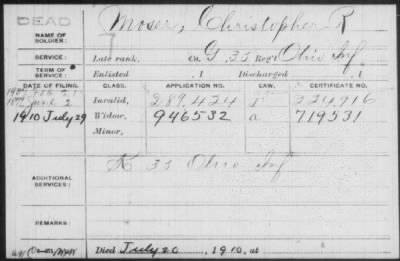 DEAD
NAME OF SOLDIER: Moser, Christopher R
SERVICE: Late rank, Co. G 33 Reg't Ohio Inf
TERM OF SERVICE: Enlisted , 1 Discharged , 1
DATE OF FILING. CLASS. APPLICATION NO. LAW. CERTIFICATE NO.
Invalid, 289,424 324,916
June 2
1910 July 29 Widow, 946532 a 719531
Minor,
ADDITIONAL SERVICES: K 33 Ohio Inf
REMARKS:
Died July 20 , 1910, at